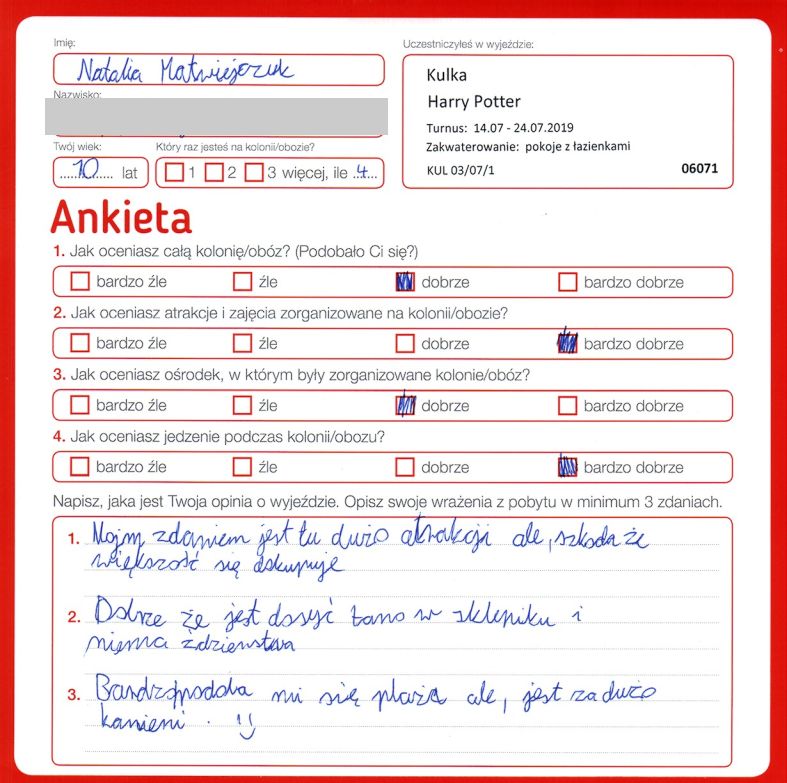 Imię:
Natalia Matwiejczuk
Nazwisko:
Twój wiek:
10 lat
Który raz jesteś na kolonii/obozie?
1 2 3 więcej, ile 4
Uczestniczyłeś w wyjeździe:
Kulka
Harry Potter
Turnus: 14.07 - 24.07.2019
Zakwaterowanie: pokoje z łazienkami
KUL 03/07/1 06071
Ankieta
1. Jak oceniasz całą kolonię/obóz? (Podobało Ci się?)
bardzo źle źle dobrze bardzo dobrze
2. Jak oceniasz atrakcje i zajęcia zorganizowane na kolonii/obozie?
bardzo źle źle dobrze bardzo dobrze
3. Jak oceniasz ośrodek, w którym były zorganizowane kolonie/obóz?
bardzo źle źle dobrze bardzo dobrze
4. Jak oceniasz jedzenie podczas kolonii/obozu?
bardzo źle źle dobrze bardzo dobrze
Napisz, jaka jest Twoja opinia o wyjeździe. Opisz swoje wrażenia z pobytu w minimum 3 zdaniach.
1. Mojm zdaniem jest tu dużo atrakcji ale, szkoda że
większość się dokupuje
2. Dobrze że jest dosyć tano w sklepiku i
niema ździerstwa
3. Bardzopodoba mi się plaża ale, jest za dużo
kamieni. :)